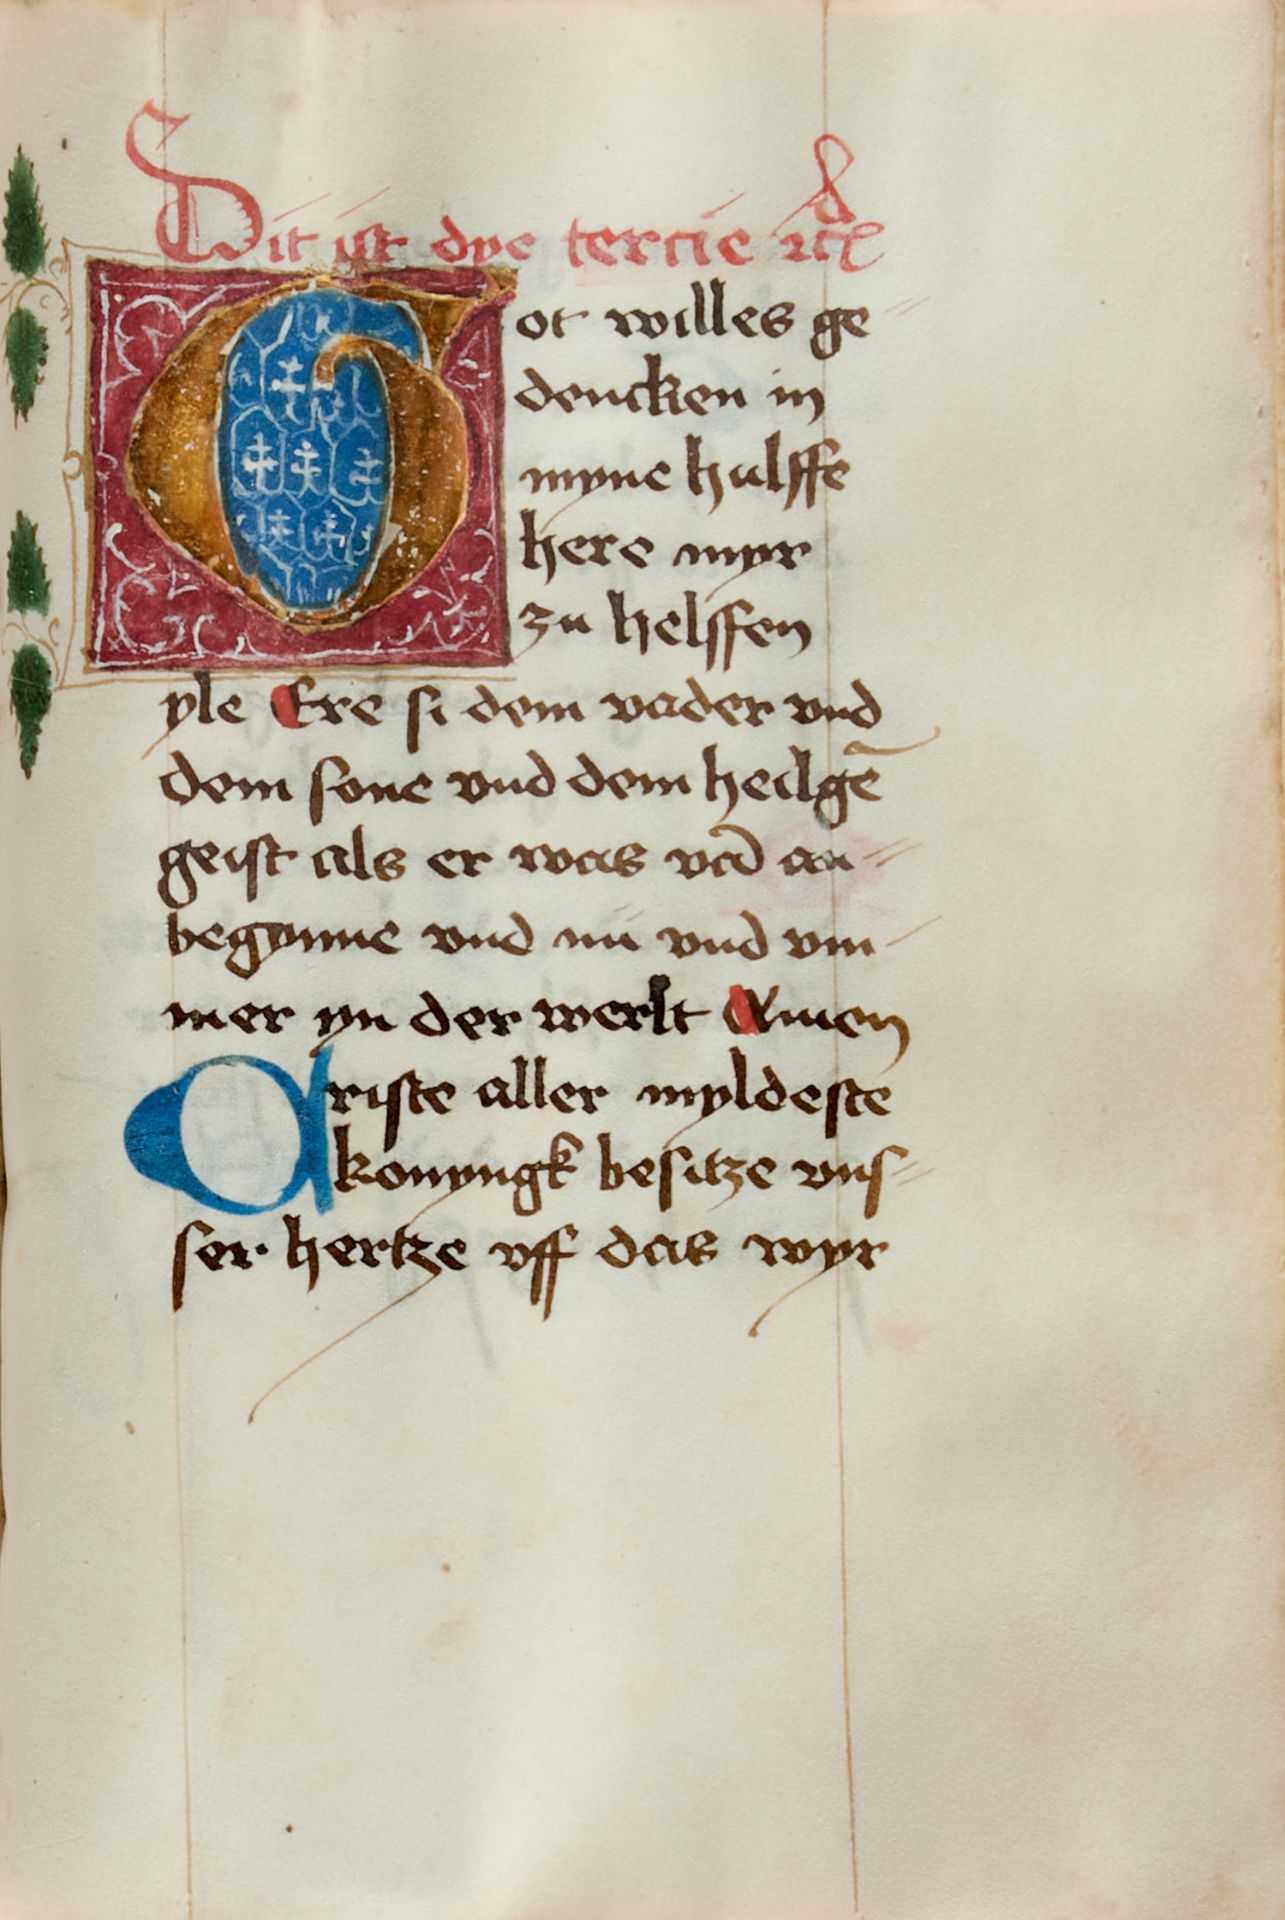 Dit ist dye tercie ꝛc̄
Got willes ge
dencken in
myne hulffe
here myr
zu helffen
yle Ere si dem vader vnd
dem sone vnd dem heilgē
geist als er was vād an
begynne vnd nu vnd vm
mer yn der werlt Amen
Criste aller myldeste
konyngk besitze vns
ser hertze vff das wyr